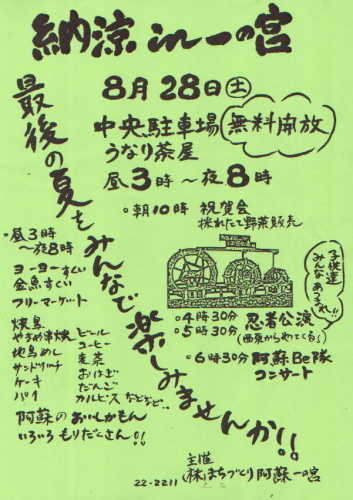 納涼 in 一の宮
8月28日(土)
中央駐車場
無料開放
うなり茶屋
昼3時〜夜8時
最後の夏をみんなで楽しみませんか!!
○朝10時 祝賀会
採れたて野菜販売
子供達
みんなあつまれ!!
・昼3時
〜夜8時
ヨーヨーすくい
金魚すくい
フリーマーケット
○4時30分 忍者公演
○5時30分 (西東からやってくる)
○6時30分 阿蘇Be隊
コンサート
焼鳥
やまめ串焼
地鳥めし
サンドウィッチ
ケーキ
パイ
ビール
コーヒー
麦茶
おはぎ
だんご
カルピス などなど..
阿蘇のおいしかもん
いろいろもりだくさん!!
主催
(株)まちづくり阿蘇一の宮
22-2211